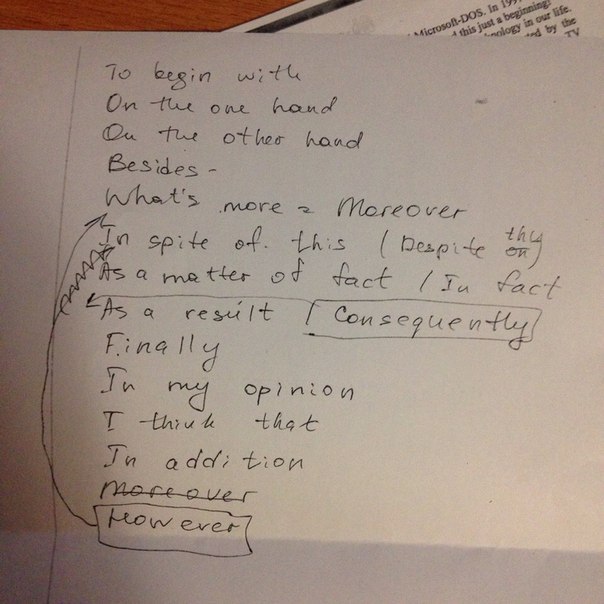 Microsoft-DOS. In 199
this just a beginning!
nology in our life.
ed by the
TV
To begin with
On the one hand
On the other hand
Besides -
What's more = Moreover
In spite of this (Despite this)
on
As a matter of fact / In fact
As a result / Consequently
Finally
In my opinion
I think that
In addition
Moreover
However